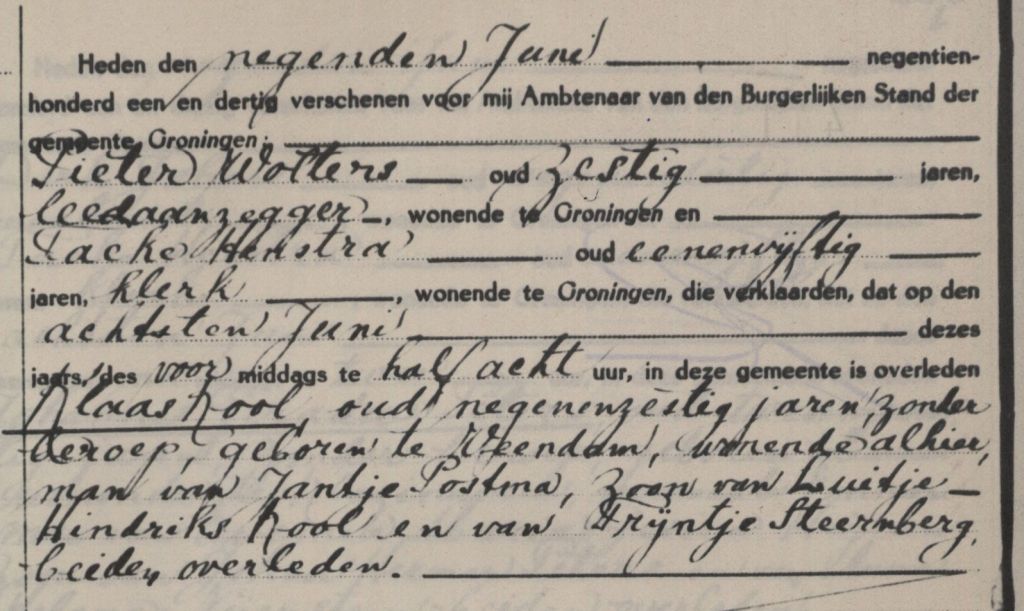 Heden den negenden Juni negentien-
honderd een en dertig verschenen voor mij Ambtenaar van den Burgerlijken Stand der
gemeente Groningen:
Pieter Wolters oud zestig jaren,
leedaanzegger, wonende te Groningen en
Tacke Henstra oud eenenvijftig
jaren, klerk, wonende te Groningen, die verklaarden, dat op den
achtsten Juni dezes
jaars, des voormiddags te half acht uur, in deze gemeente is overleden
Klaas Kool, oud negenenzestig jaren, zonder
beroep, geboren te Veendam, wonende alhier,
man van Jantje Postma, zoon van Luitje
Hindriks Kool en van Trijntje Steernberg,
beiden overleden.